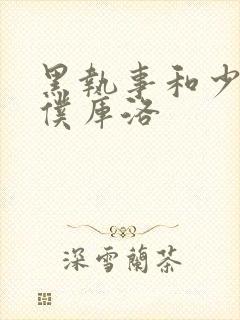 黑執事和少
僕庫洛
深雪蘭茶